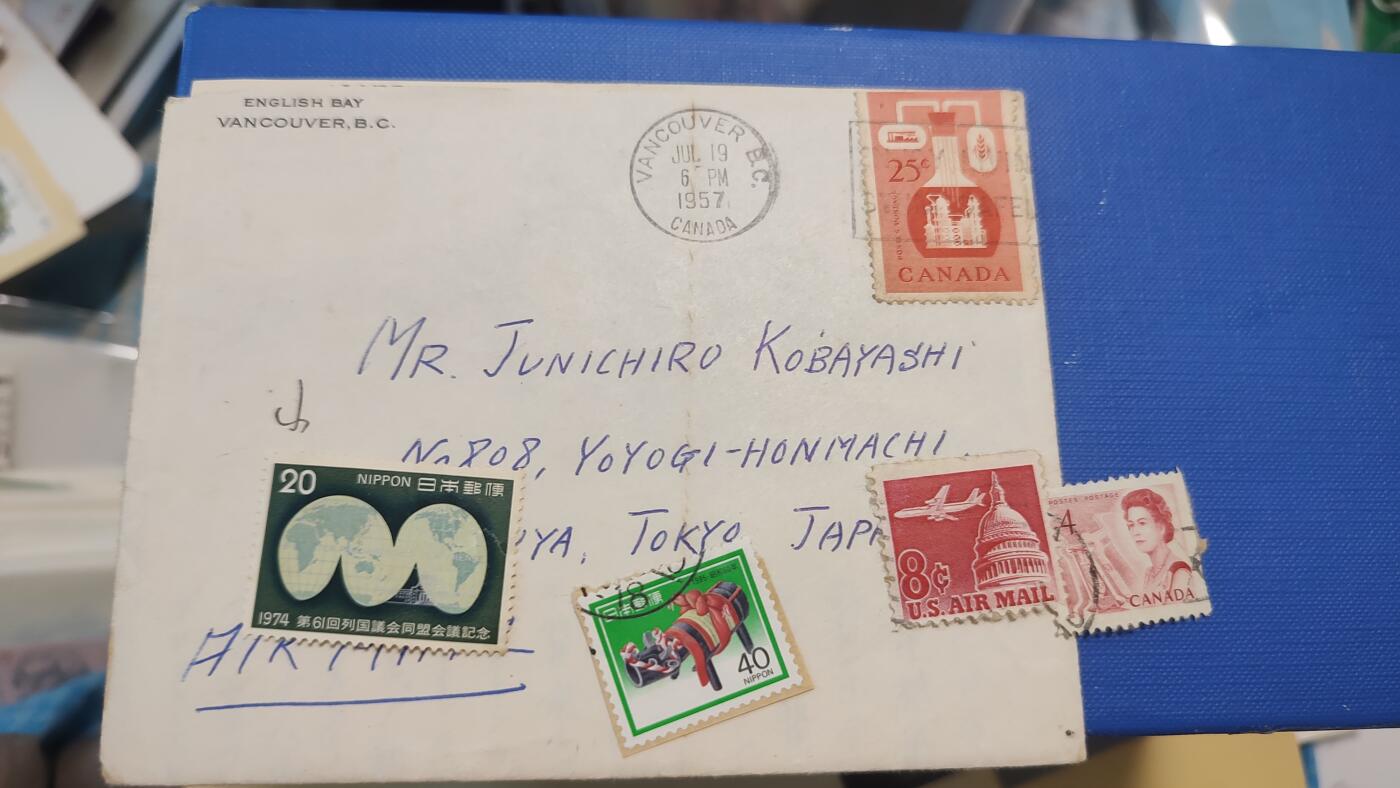 ENGLISH BAY
VANCOUVER, B.C.
VANCOUVER B.C.
JUL 19
6 PM
1957
CANADA
25¢
POSTES POSTAGE
CANADA
MR. JUNICHIRO KOBAYASHI
No 808, YOYOGI-HONMACHI,
YA, TOKYO JAPA
AIR
20 NIPPON 日本郵便
1974 第61回列国議会同盟会議記念
18
日本郵便
40
NIPPON
8¢
U.S. AIR MAIL
POSTES POSTAGE
4
CANADA